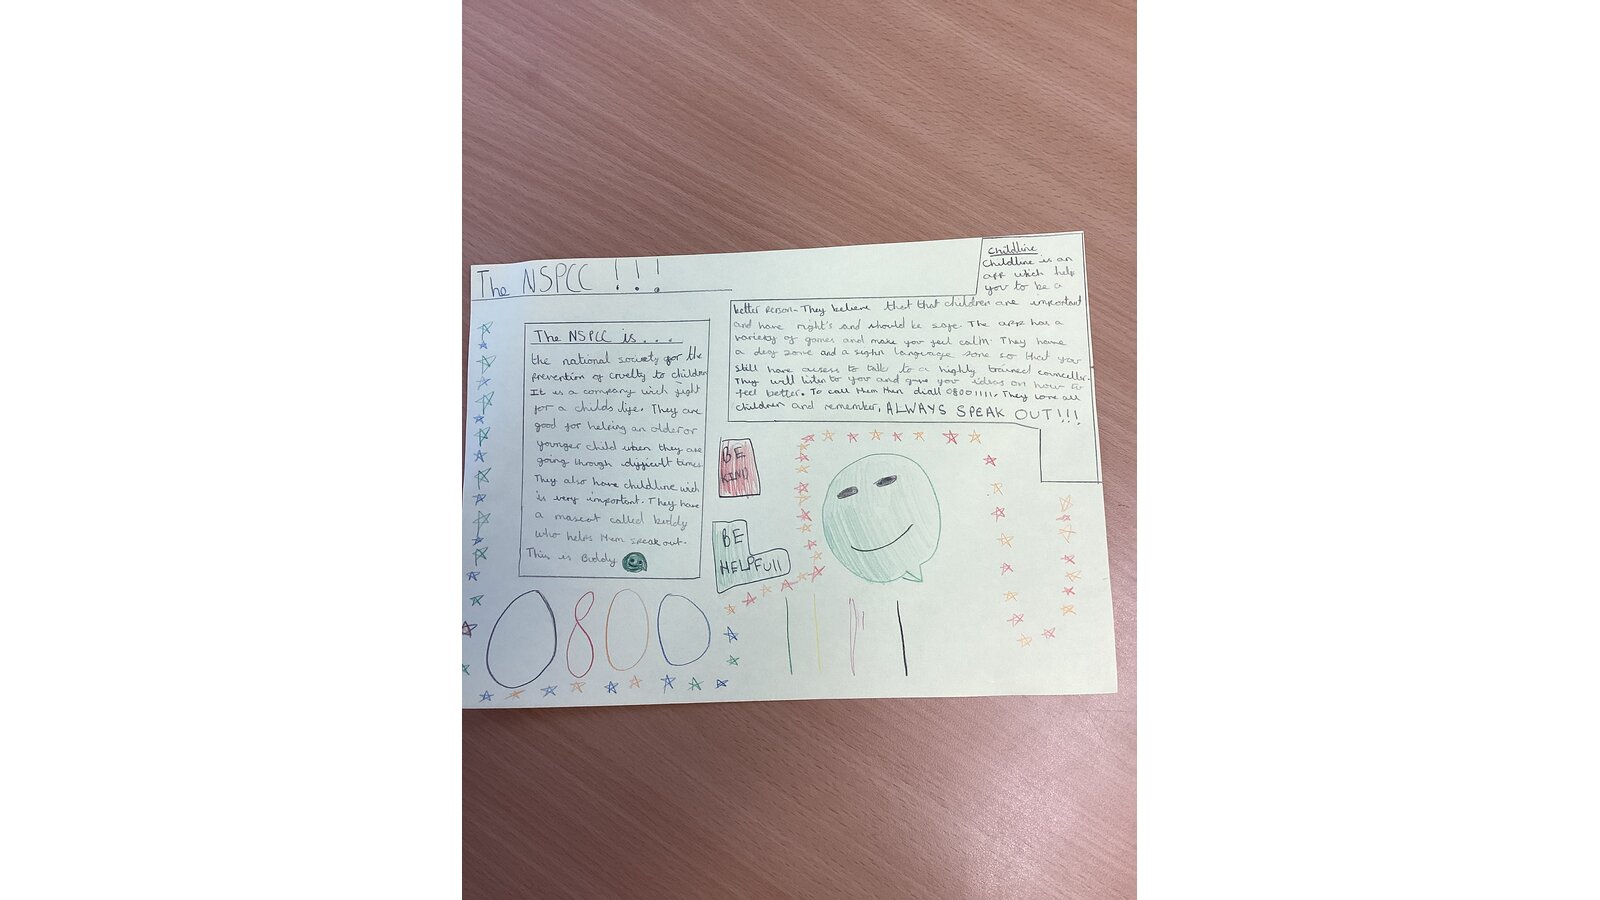 The NSPCC !!!
The NSPCC is...
the national society for the
prevention of cruelty to children
It is a company wich fight
for a childs life. They are
good for helping an older or
younger child when they are
going through dyfficult times
They also have childline wich
is very important. They have
a mascot called buddy
who helps them speak out.
This is Buddy
Childline
Childline is an
app which help
you to be a
better person. They believe that that children are important
and have right's and should be safe. The app has a
variety of games and make you feel calm. They have
a deaf zone and a sighn language zone so that you
still have acsess to talk to a highly trained counceller.
They will listen to you and give you ideas on how to
feel better. To call them then diall 08001111. They love all
children and remember, ALWAYS SPEAK OUT!!!
BE
KIND
BE
HELPFUll
0800
1111